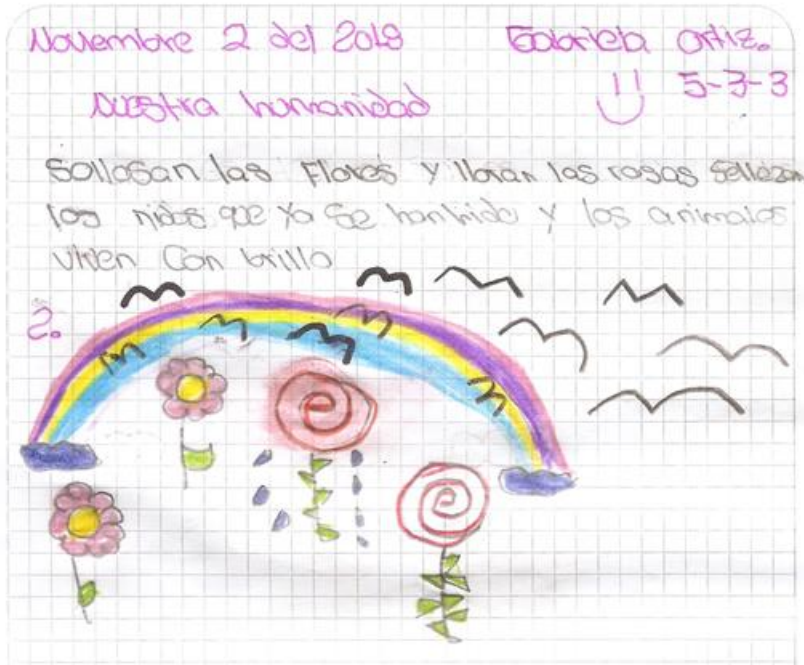 Noviembre 2 del 2018 Gabriela Ortiz.
Nuestra humanidad 5-3-3
Sollosan las Flores y lloran las rosas Sollozan
los nidos que ya Se han hido y los animales
viven Con brillo
2.